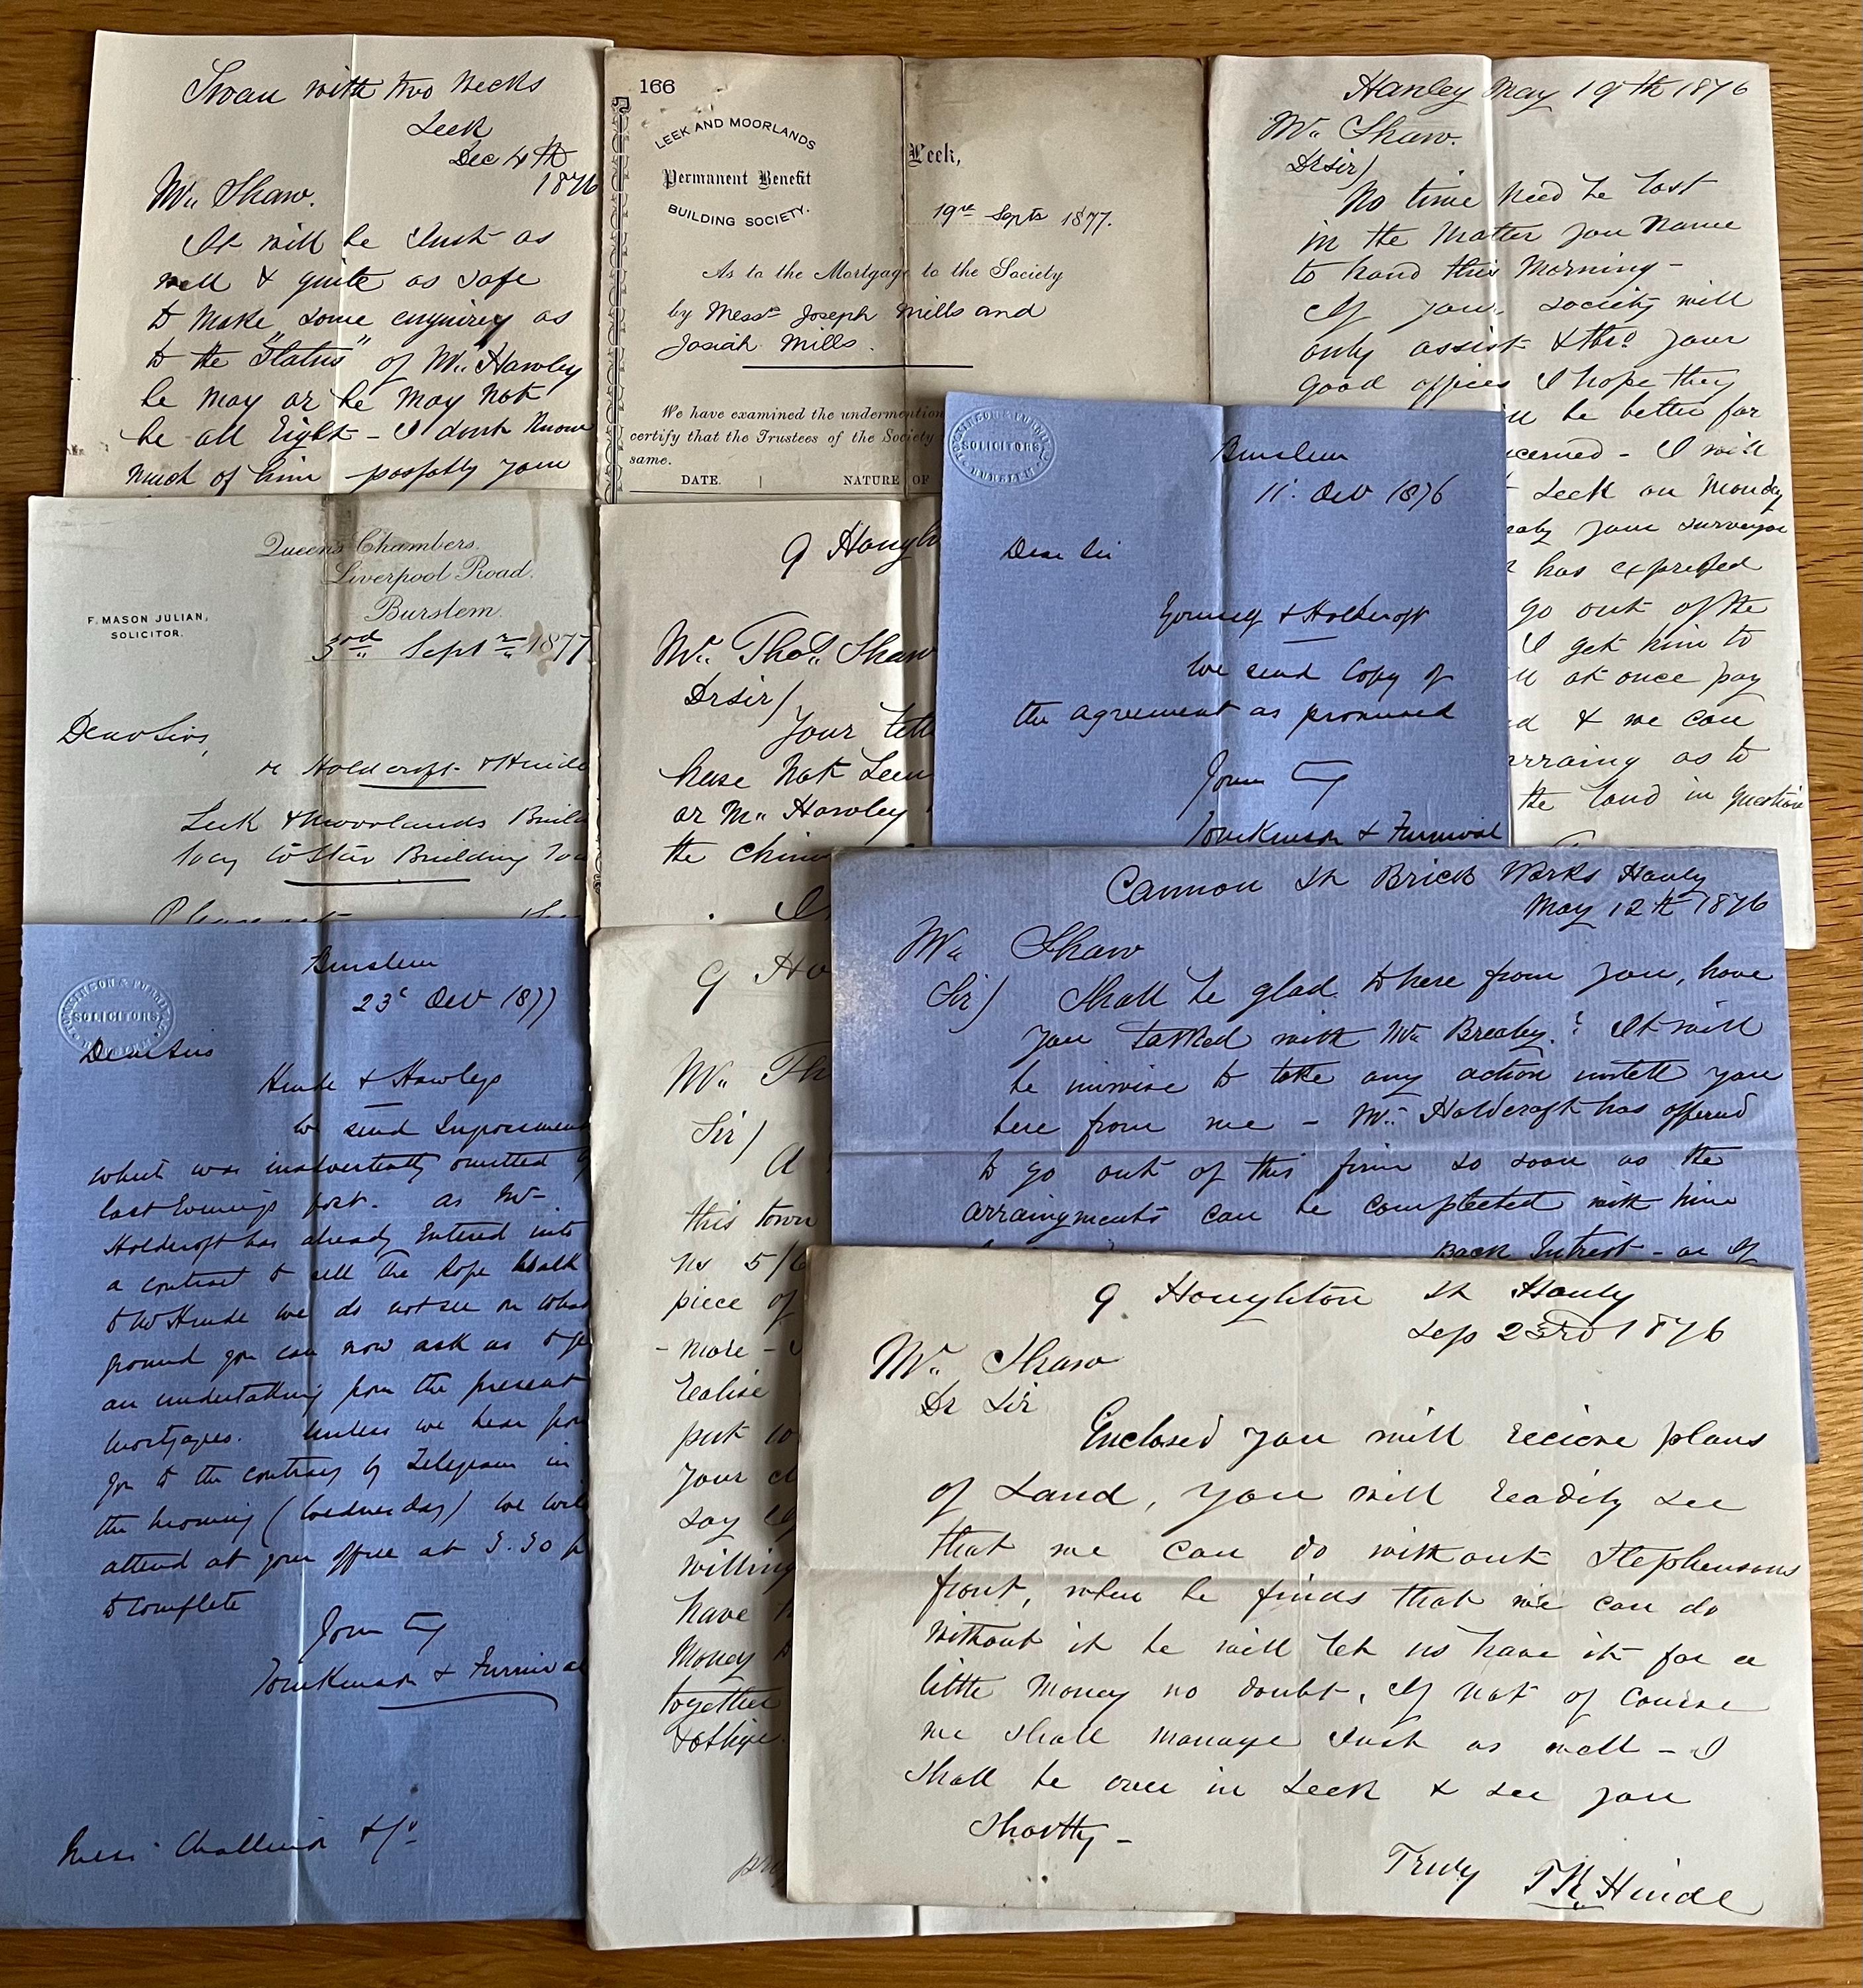 Swan with two Necks
Leek
Dec 4th
1876
Mr. Shaw.
It will be Just as
well & quite as safe
to make some enquirey as
to the "Status" of Mr. Hawley
he may or he may not
be all Right - I dont Know
much of him - possably your
166
LEEK AND MOORLANDS
Permanent Benefit
BUILDING SOCIETY.
Leek,
19th Septr 1877.
As to the Mortgage to the Society
by Messrs Joseph Mills and
Josiah Mills.
We have examined the undermention
certify that the Trustees of the Society
same.
DATE. NATURE OF
Hanley May 19th 1876
Mr. Shaw.
Dr sir/
No time need be lost
in the Matter you Name
to hand this Morning -
If your society will
only assist & thro your
good offices I hope they
be better for
cerned - I will
Leek on Monday
your surveyor
has expressed
go out of the
I get him to
at once pay
& we can
arraing as to
the land in question
Queens Chambers,
Liverpool Road.
Burslem.
F. MASON JULIAN,
SOLICITOR.
3rd Septr 1877
Dear Sirs,
re Holdcroft & Hinde
Leek & Moorlands Buil
Socy to Star Building Soc
Please
9 Hough
Mr. Thos. Shaw
Dr sir/
Your lett
have Not seen
or Mr. Hawley
the chim
I
SOLICITORS
BURSLEM
Burslem
11. Oct 1876
Dear Sir
Yourself & Holdcroft
We send Copy of
the agreement as promised
Yours Try
Tomkinson & Furnival
Cannon St Brick Works Hanly
May 12th 1876
Mr. Shaw
Sir/ Shall be glad to here from you, have
you talked with Mr. Brealey? It will
be unwise to take any action untell you
here from me - Mr. Holdcroft has offered
to go out of this firm so soon as the
arraingments can be completed with him
Back Intrest - or if
SOLICITORS
Burslem
23d Oct 1877
Dear Sirs
Hinde & Hawleys
We send
which was inadvertently omitted
last Evenings post. as Mr
Holdcroft has already Entered into
a contract to sell the Rope Walk
to Mr Hinde we do not see on what
ground you can now ask us to
an undertaking from the present
mortgagees. Unless we hear from
you to the contrary by Telegram in
the morning (Wednesday) we will
attend at your office at 3.30 p
to complete
Yours Try
Tomkinson & Furnival
Messrs Challinor & Co
9 Ho
Mr. Th
Sir/
A
this town
ns 5/6
piece of
- more -
realise
put
your
say
willing
have
Money
together
& oblige
9 Houghton St Hanly
Sep 23rd 1876
Mr. Shaw
Dr Sir
Enclosed you will recieve plans
of Land, you will readily see
that we can do without Stephensons
front, when he finds that we can do
without it he will let us have it for a
little money no doubt, If not of course
we shall manage Just as well - I
Shall be over in Leek & see you
Shortly -
Truly T R Hinde